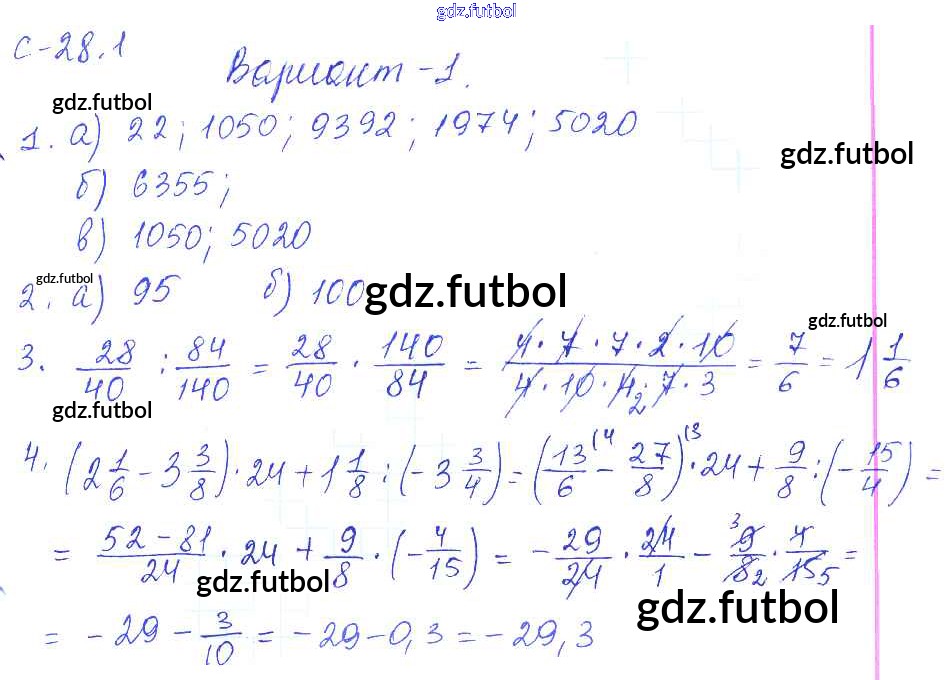 gdz.futbol
С-28.1
Вариант-1.
gdz.futbol
1. а) 22; 1050; 9392; 1974; 5020
gdz.futbol
б) 6355;
в) 1050; 5020
gdz.futbol
2. а) 95 б) 100 gdz.futbol
gdz.futbol
3. 28/40 : 84/140 = 28/40 · 140/84 = 4·7·7·2·10/4·10·4₂·7·3 = 7/6 = 1 1/6
gdz.futbol
4. (2 1/6 - 3 3/8) · 24 + 1 1/8 : (-3 3/4) = (13/6 (4 - 27/8)(3 · 24 + 9/8 : (-15/4) =
= 52-81/24 · 24 + 9/8 · (-4/15) = -29/24 · 24/1 - ³9/8₂ · 4/15₅ =
gdz.futbol
gdz.futbol
= -29 - 3/10 = -29-0,3 = -29,3